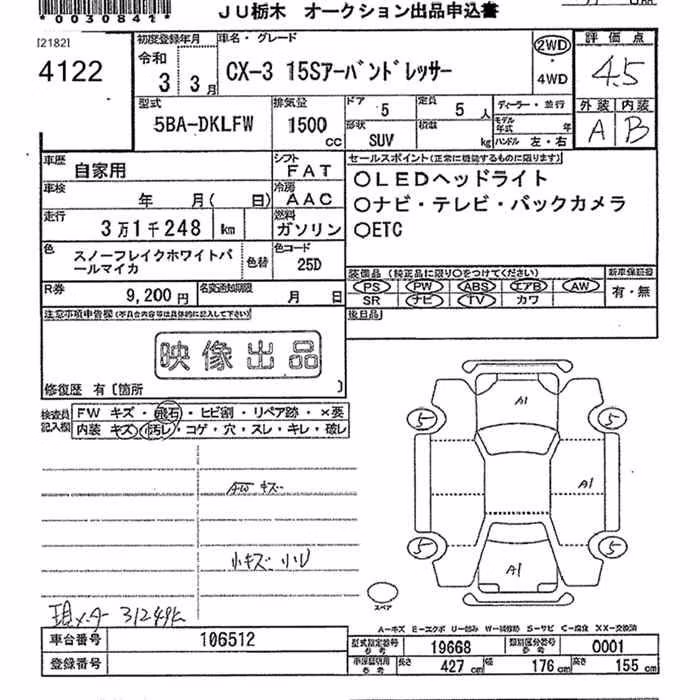 *0030841*
JU栃木 オークション出品申込書
[2182]
4122
初度登録年月
令和
3 3月
車名・グレード
CX-3 15Sアーバンドレッサー
2WD
4WD
評価点
4.5
外装 内装
A B
型式
5BA-DKLFW
排気量
1500
cc
ドア 5
定員 5 人
形状 SUV
積載 kg
ディーラー・並行
モデル年式 年
ハンドル 左・右
車歴 自家用
シフト FAT
車検 年 月( 日)
冷房 AAC
走行 3万1千248 km
燃料 ガソリン
色 スノーフレイクホワイトパールマイカ
色替
色コード 25D
R券 9,200円
名変通知期限 月 日
セールスポイント(正常に機能するものに限ります)
○LEDヘッドライト
○ナビ・テレビ・バックカメラ
○ETC
装備品(純正品に限り○をつけてください)
PS PW ABS エアB AW
SR ナビ TV カワ
新車保証書
有・無
後日品
注意事項申告欄(不具合内容等は具体的に記入して下さい)
映像出品
修復歴 有〔箇所 〕
検査員記入欄
FW キズ・飛石・ヒビ割・リペア跡・×要
内装 キズ・汚レ・コゲ・穴・スレ・キレ・破レ
AW キズ
小キズ 小U
現メーター 31249k
A1
A1
A1
5
5
5
5
スペア
A－キズ E－エクボ U－凹み W－補修跡 S－サビ C－腐食 XX－交換済
車台番号 106512
登録番号
型式指定番号 参考 19668
類別区分番号 参考 0001
車保管場所用 参考
長さ 427 cm 幅 176 cm 高さ 155 cm